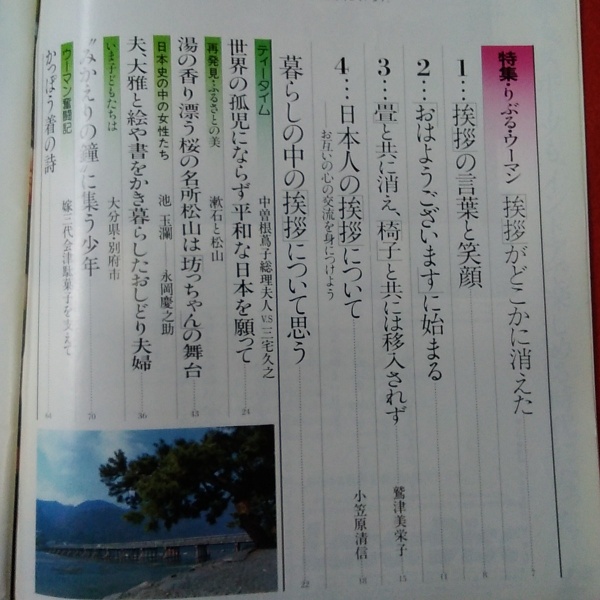 特集・りぶる・ウーマン 挨拶がどこかに消えた 7
1…「挨拶」の言葉と笑顔 8
2…「おはようございます」に始まる 11
3…「畳」と共に消え、「椅子」と共には移入されず 鷲津美栄子 15
4…日本人の「挨拶」について 小笠原清信 18
お互いの心の交流を身につけよう
暮らしの中の「挨拶」について思う 22
ティータイム 中曽根蔦子総理夫人VS三宅久之
世界の孤児にならず平和な日本を願って 24
再発見・ふるさとの美 漱石と松山
湯の香り漂う桜の名所松山は「坊っちゃん」の舞台 13
日本史の中の女性たち 池玉瀾――永岡慶之助
夫、大雅と絵や書をかき暮らしたおしどり夫婦 36
いま子どもたちは 大分県・別府市
"みかえりの鐘"に集う少年 70
ウーマン奮闘記 嫁三代会津駄菓子を支えて
かっぽう着の詩